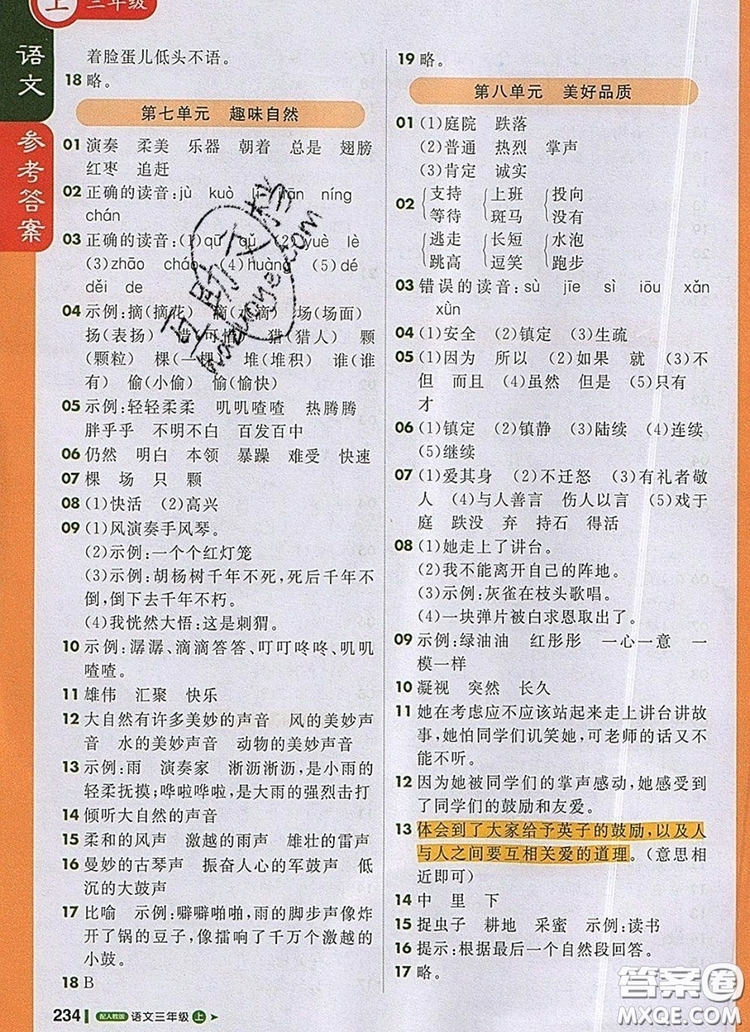 上
三年级
语文
参考答案
着脸蛋儿低头不语。
18 略。
第七单元 趣味自然
01 演奏 柔美 乐器 朝着 总是 翅膀
红枣 追赶
02 正确的读音:jù kuò nán níng
chán
03 正确的读音:(1)qū qǔ (2)yuè lè
(3)zhāo cháo (4)huàng (5)dé
děi de
04 示例:摘(摘花) 滴(水滴) 场(场面)
扬(表扬) 惜(可惜) 猎(猎人) 颗
(颗粒) 棵(一棵) 堆(堆积) 谁(谁
有) 偷(小偷) 愉(愉快)
05 示例:轻轻柔柔 叽叽喳喳 热腾腾
胖乎乎 不明不白 百发百中
06 仍然 明白 本领 暴躁 难受 快速
07 棵 场 只 颗
08 (1)快活 (2)高兴
09 (1)风演奏手风琴。
(2)示例:一个个红灯笼
(3)示例:胡杨树千年不死,死后千年不
倒,倒下去千年不朽。
(4)我恍然大悟:这是刺猬。
10 示例:潺潺、滴滴答答、叮叮咚咚、叽叽
喳喳。
11 雄伟 汇聚 快乐
12 大自然有许多美妙的声音 风的美妙声
音 水的美妙声音 动物的美妙声音
13 示例:雨 演奏家 淅沥淅沥,是小雨的
轻柔抚摸;哗啦哗啦,是大雨的强烈击打
14 倾听大自然的声音
15 柔和的风声 激越的雨声 雄壮的雷声
16 曼妙的古琴声 振奋人心的军鼓声 低
沉的大鼓声
17 比喻 示例:噼噼啪啪,雨的脚步声像炸
开了锅的豆子,像擂响了千万个激越的
小鼓。
18 B
234 配人教版 语文三年级 上
19 略。
第八单元 美好品质
01 (1)庭院 跌落
(2)普通 热烈 掌声
(3)肯定 诚实
02 支持 上班 投向
等待 斑马 没有
逃走 长短 水泡
跳高 逗笑 跑步
03 错误的读音:sù jīe sì iōu xǎn
xùn
04 (1)安全 (2)镇定 (3)生疏
05 (1)因为 所以 (2)如果 就 (3)不
但 而且 (4)虽然 但是 (5)只有
才
06 (1)镇定 (2)镇静 (3)陆续 (4)连续
(5)继续
07 (1)爱其身 (2)不迁怒 (3)有礼者敬
人 (4)与人善言 伤人以言 (5)戏于
庭 跌没 弃 持石 得活
08 (1)她走上了讲台。
(2)我不能离开自己的阵地。
(3)示例:灰雀在枝头歌唱。
(4)一块弹片被白求恩取出了。
09 示例:绿油油 红彤彤 一心一意 一
模一样
10 凝视 突然 长久
11 她在考虑应不应该站起来走上讲台讲故
事,她怕同学们讥笑她,可老师的话又不
能不听。
12 因为她被同学们的掌声感动,她感受到
了同学们的鼓励和友爱。
13 体会到了大家给予英子的鼓励,以及人
与人之间要互相关爱的道理。(意思相
近即可)
14 中 里 下
15 捉虫子 耕地 采蜜 示例:读书
16 提示:根据最后一段内容回答。
17 略。
答案圈
MXQE.COM